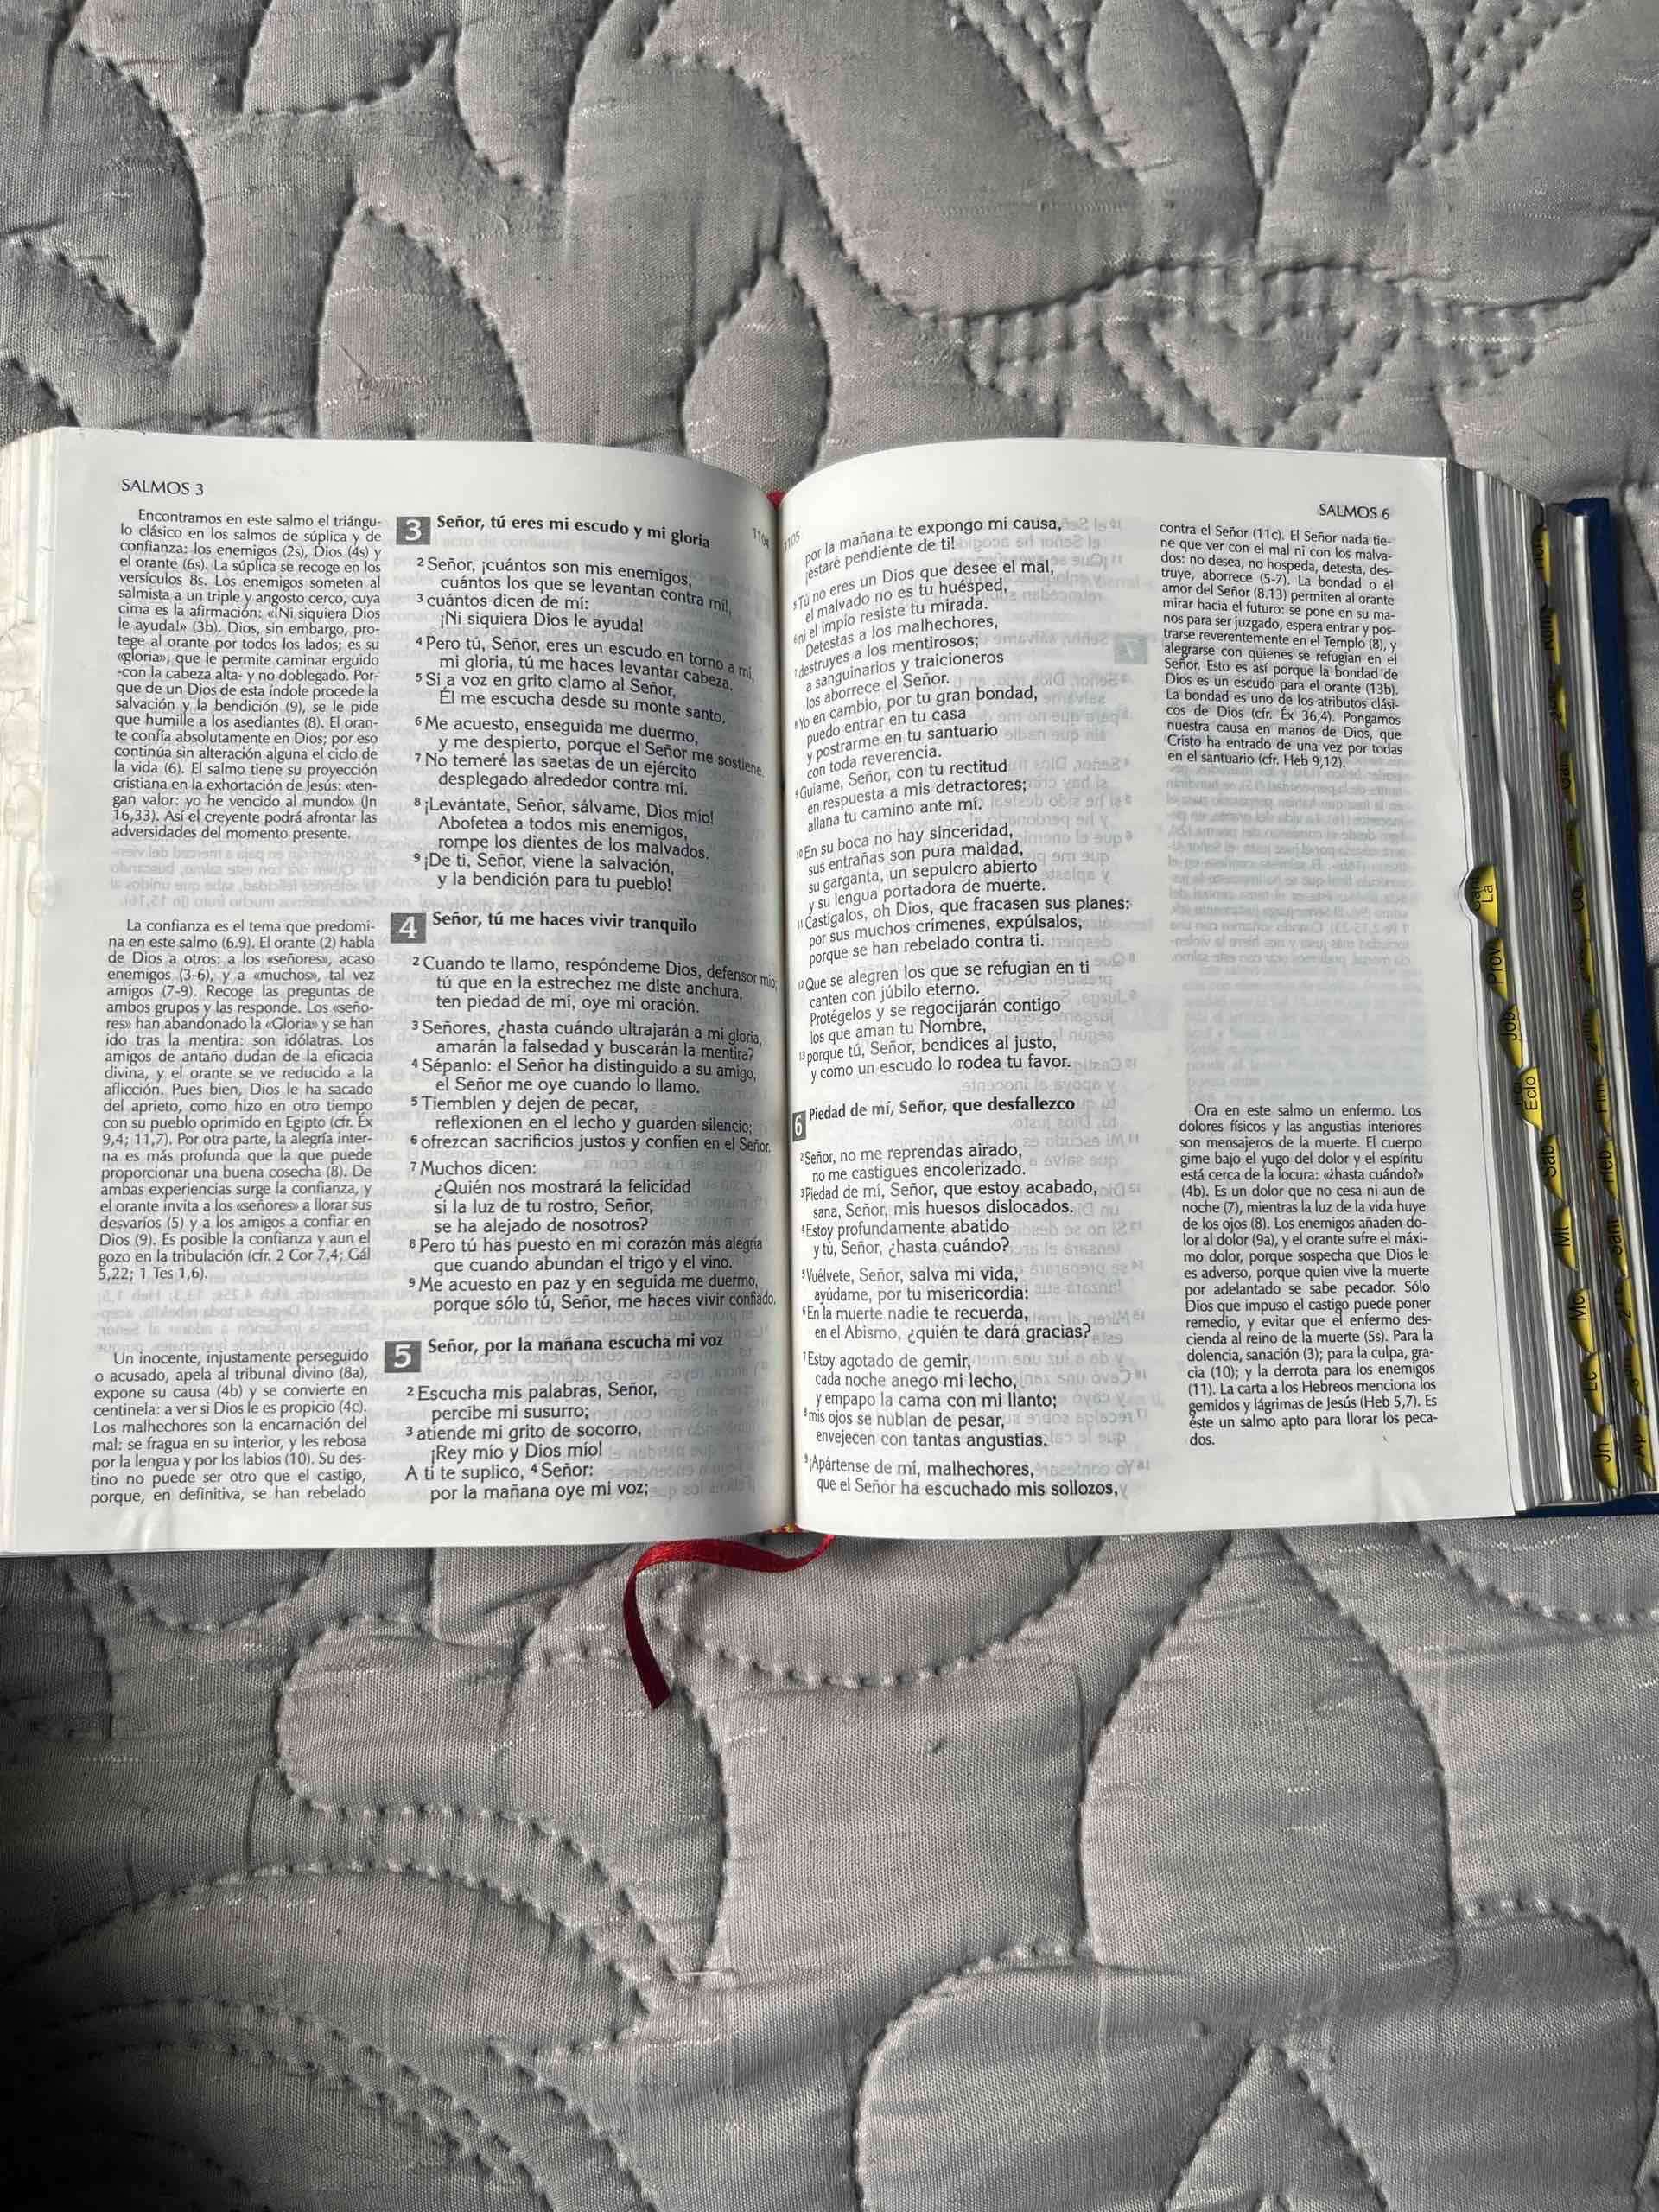 SALMOS 3
Encontramos en este salmo el triángu-
lo clásico en los salmos de súplica y de
confianza: los enemigos (2s), Dios (4s) y
el orante (6s). La súplica se recoge en los
versículos 8s. Los enemigos someten al
salmista a un triple y angosto cerco, cuya
cima es la afirmación: «¡Ni siquiera Dios
le ayuda!» (3b). Dios, sin embargo, pro-
tege al orante por todos los lados; es su
«gloria», que le permite caminar erguido
-con la cabeza alta- y no doblegado. Por-
que de un Dios de esta índole procede la
salvación y la bendición (9), se le pide
que humille a los asediantes (8). El oran-
te confía absolutamente en Dios; por eso
continúa sin alteración alguna el ciclo de
la vida (6). El salmo tiene su proyección
cristiana en la exhortación de Jesús: «ten-
gan valor: yo he vencido al mundo» (Jn
16,33). Así el creyente podrá afrontar las
adversidades del momento presente.
La confianza es el tema que predomi-
na en este salmo (6.9). El orante (2) habla
de Dios a otros: a los «señores», acaso
enemigos (3-6), y a «muchos», tal vez
amigos (7-9). Recoge las preguntas de
ambos grupos y las responde. Los «seño-
res» han abandonado la «Gloria» y se han
ido tras la mentira: son idólatras. Los
amigos de antaño dudan de la eficacia
divina, y el orante se ve reducido a la
aflicción. Pues bien, Dios le ha sacado
del aprieto, como hizo en otro tiempo
con su pueblo oprimido en Egipto (cfr. Éx
9,4; 11,7). Por otra parte, la alegría inter-
na es más profunda que la que puede
proporcionar una buena cosecha (8). De
ambas experiencias surge la confianza, y
el orante invita a los «señores» a llorar sus
desvaríos (5) y a los amigos a confiar en
Dios (9). Es posible la confianza y aun el
gozo en la tribulación (cfr. 2 Cor 7,4; Gál
5,22; 1 Tes 1,6).
Un inocente, injustamente perseguido
o acusado, apela al tribunal divino (8a),
expone su causa (4b) y se convierte en
centinela: a ver si Dios le es propicio (4c).
Los malhechores son la encarnación del
mal: se fragua en su interior, y les rebosa
por la lengua y por los labios (10). Su des-
tino no puede ser otro que el castigo,
porque, en definitiva, se han rebelado
1104
3 Señor, tú eres mi escudo y mi gloria
2 Señor, ¡cuántos son mis enemigos,
cuántos los que se levantan contra mí!,
3 cuántos dicen de mí:
¡Ni siquiera Dios le ayuda!
4 Pero tú, Señor, eres un escudo en torno a mí,
mi gloria, tú me haces levantar cabeza.
5 Si a voz en grito clamo al Señor,
Él me escucha desde su monte santo.
6 Me acuesto, enseguida me duermo,
y me despierto, porque el Señor me sostiene.
7 No temeré las saetas de un ejército
desplegado alrededor contra mí.
8 ¡Levántate, Señor, sálvame, Dios mío!
Abofetea a todos mis enemigos,
rompe los dientes de los malvados.
9 ¡De ti, Señor, viene la salvación,
y la bendición para tu pueblo!
4 Señor, tú me haces vivir tranquilo
2 Cuando te llamo, respóndeme Dios, defensor mío,
tú que en la estrechez me diste anchura,
ten piedad de mí, oye mi oración.
3 Señores, ¿hasta cuándo ultrajarán a mi gloria,
amarán la falsedad y buscarán la mentira?
4 Sépanlo: el Señor ha distinguido a su amigo,
el Señor me oye cuando lo llamo.
5 Tiemblen y dejen de pecar,
reflexionen en el lecho y guarden silencio;
6 ofrezcan sacrificios justos y confíen en el Señor.
7 Muchos dicen:
¿Quién nos mostrará la felicidad
si la luz de tu rostro, Señor,
se ha alejado de nosotros?
8 Pero tú has puesto en mi corazón más alegría
que cuando abundan el trigo y el vino.
9 Me acuesto en paz y en seguida me duermo,
porque sólo tú, Señor, me haces vivir confiado.
5 Señor, por la mañana escucha mi voz
2 Escucha mis palabras, Señor,
percibe mi susurro;
3 atiende mi grito de socorro,
¡Rey mío y Dios mío!
A ti te suplico, 4 Señor:
por la mañana oye mi voz;
1105
SALMOS 6
por la mañana te expongo mi causa,
¡estaré pendiente de ti!
5 Tú no eres un Dios que desee el mal,
el malvado no es tu huésped,
6 ni el impío resiste tu mirada.
Detestas a los malhechores,
7 destruyes a los mentirosos;
a sanguinarios y traicioneros
los aborrece el Señor.
8 Yo en cambio, por tu gran bondad,
puedo entrar en tu casa
y postrarme en tu santuario
con toda reverencia.
9 Guíame, Señor, con tu rectitud
en respuesta a mis detractores;
allana tu camino ante mí.
10 En su boca no hay sinceridad,
sus entrañas son pura maldad,
su garganta, un sepulcro abierto
y su lengua portadora de muerte.
11 Castígalos, oh Dios, que fracasen sus planes:
por sus muchos crímenes, expúlsalos,
porque se han rebelado contra ti.
12 Que se alegren los que se refugian en ti
canten con júbilo eterno.
Protégelos y se regocijarán contigo
los que aman tu Nombre,
13 porque tú, Señor, bendices al justo,
y como un escudo lo rodea tu favor.
6 Piedad de mí, Señor, que desfallezco
2 Señor, no me reprendas airado,
no me castigues encolerizado.
3 Piedad de mí, Señor, que estoy acabado,
sana, Señor, mis huesos dislocados.
4 Estoy profundamente abatido
y tú, Señor, ¿hasta cuándo?
5 Vuélvete, Señor, salva mi vida,
ayúdame, por tu misericordia:
6 En la muerte nadie te recuerda,
en el Abismo, ¿quién te dará gracias?
7 Estoy agotado de gemir,
cada noche anego mi lecho,
y empapo la cama con mi llanto;
8 mis ojos se nublan de pesar,
envejecen con tantas angustias.
9 ¡Apártense de mí, malhechores,
que el Señor ha escuchado mis sollozos,
contra el Señor (11c). El Señor nada tie-
ne que ver con el mal ni con los malva-
dos: no desea, no hospeda, detesta, des-
truye, aborrece (5-7). La bondad o el
amor del Señor (8.13) permiten al orante
mirar hacia el futuro: se pone en su ma-
nos para ser juzgado, espera entrar y pos-
trarse reverentemente en el Templo (8), y
alegrarse con quienes se refugian en el
Señor. Esto es así porque la bondad de
Dios es un escudo para el orante (13b).
La bondad es uno de los atributos clási-
cos de Dios (cfr. Éx 36,4). Pongamos
nuestra causa en manos de Dios, que
Cristo ha entrado de una vez por todas
en el santuario (cfr. Heb 9,12).
Ora en este salmo un enfermo. Los
dolores físicos y las angustias interiores
son mensajeros de la muerte. El cuerpo
gime bajo el yugo del dolor y el espíritu
está cerca de la locura: «¿hasta cuándo?»
(4b). Es un dolor que no cesa ni aun de
noche (7), mientras la luz de la vida huye
de los ojos (8). Los enemigos añaden do-
lor al dolor (9a), y el orante sufre el máxi-
mo dolor, porque sospecha que Dios le
es adverso, porque quien vive la muerte
por adelantado se sabe pecador. Sólo
Dios que impuso el castigo puede poner
remedio, y evitar que el enfermo des-
cienda al reino de la muerte (5s). Para la
dolencia, sanación (3); para la culpa, gra-
cia (10); y la derrota para los enemigos
(11). La carta a los Hebreos menciona los
gemidos y lágrimas de Jesús (Heb 5,7). Es
éste un salmo apto para llorar los peca-
dos.
La
Prov
Job
Eclo
Sab
Mt
Mc
Lc
Jn